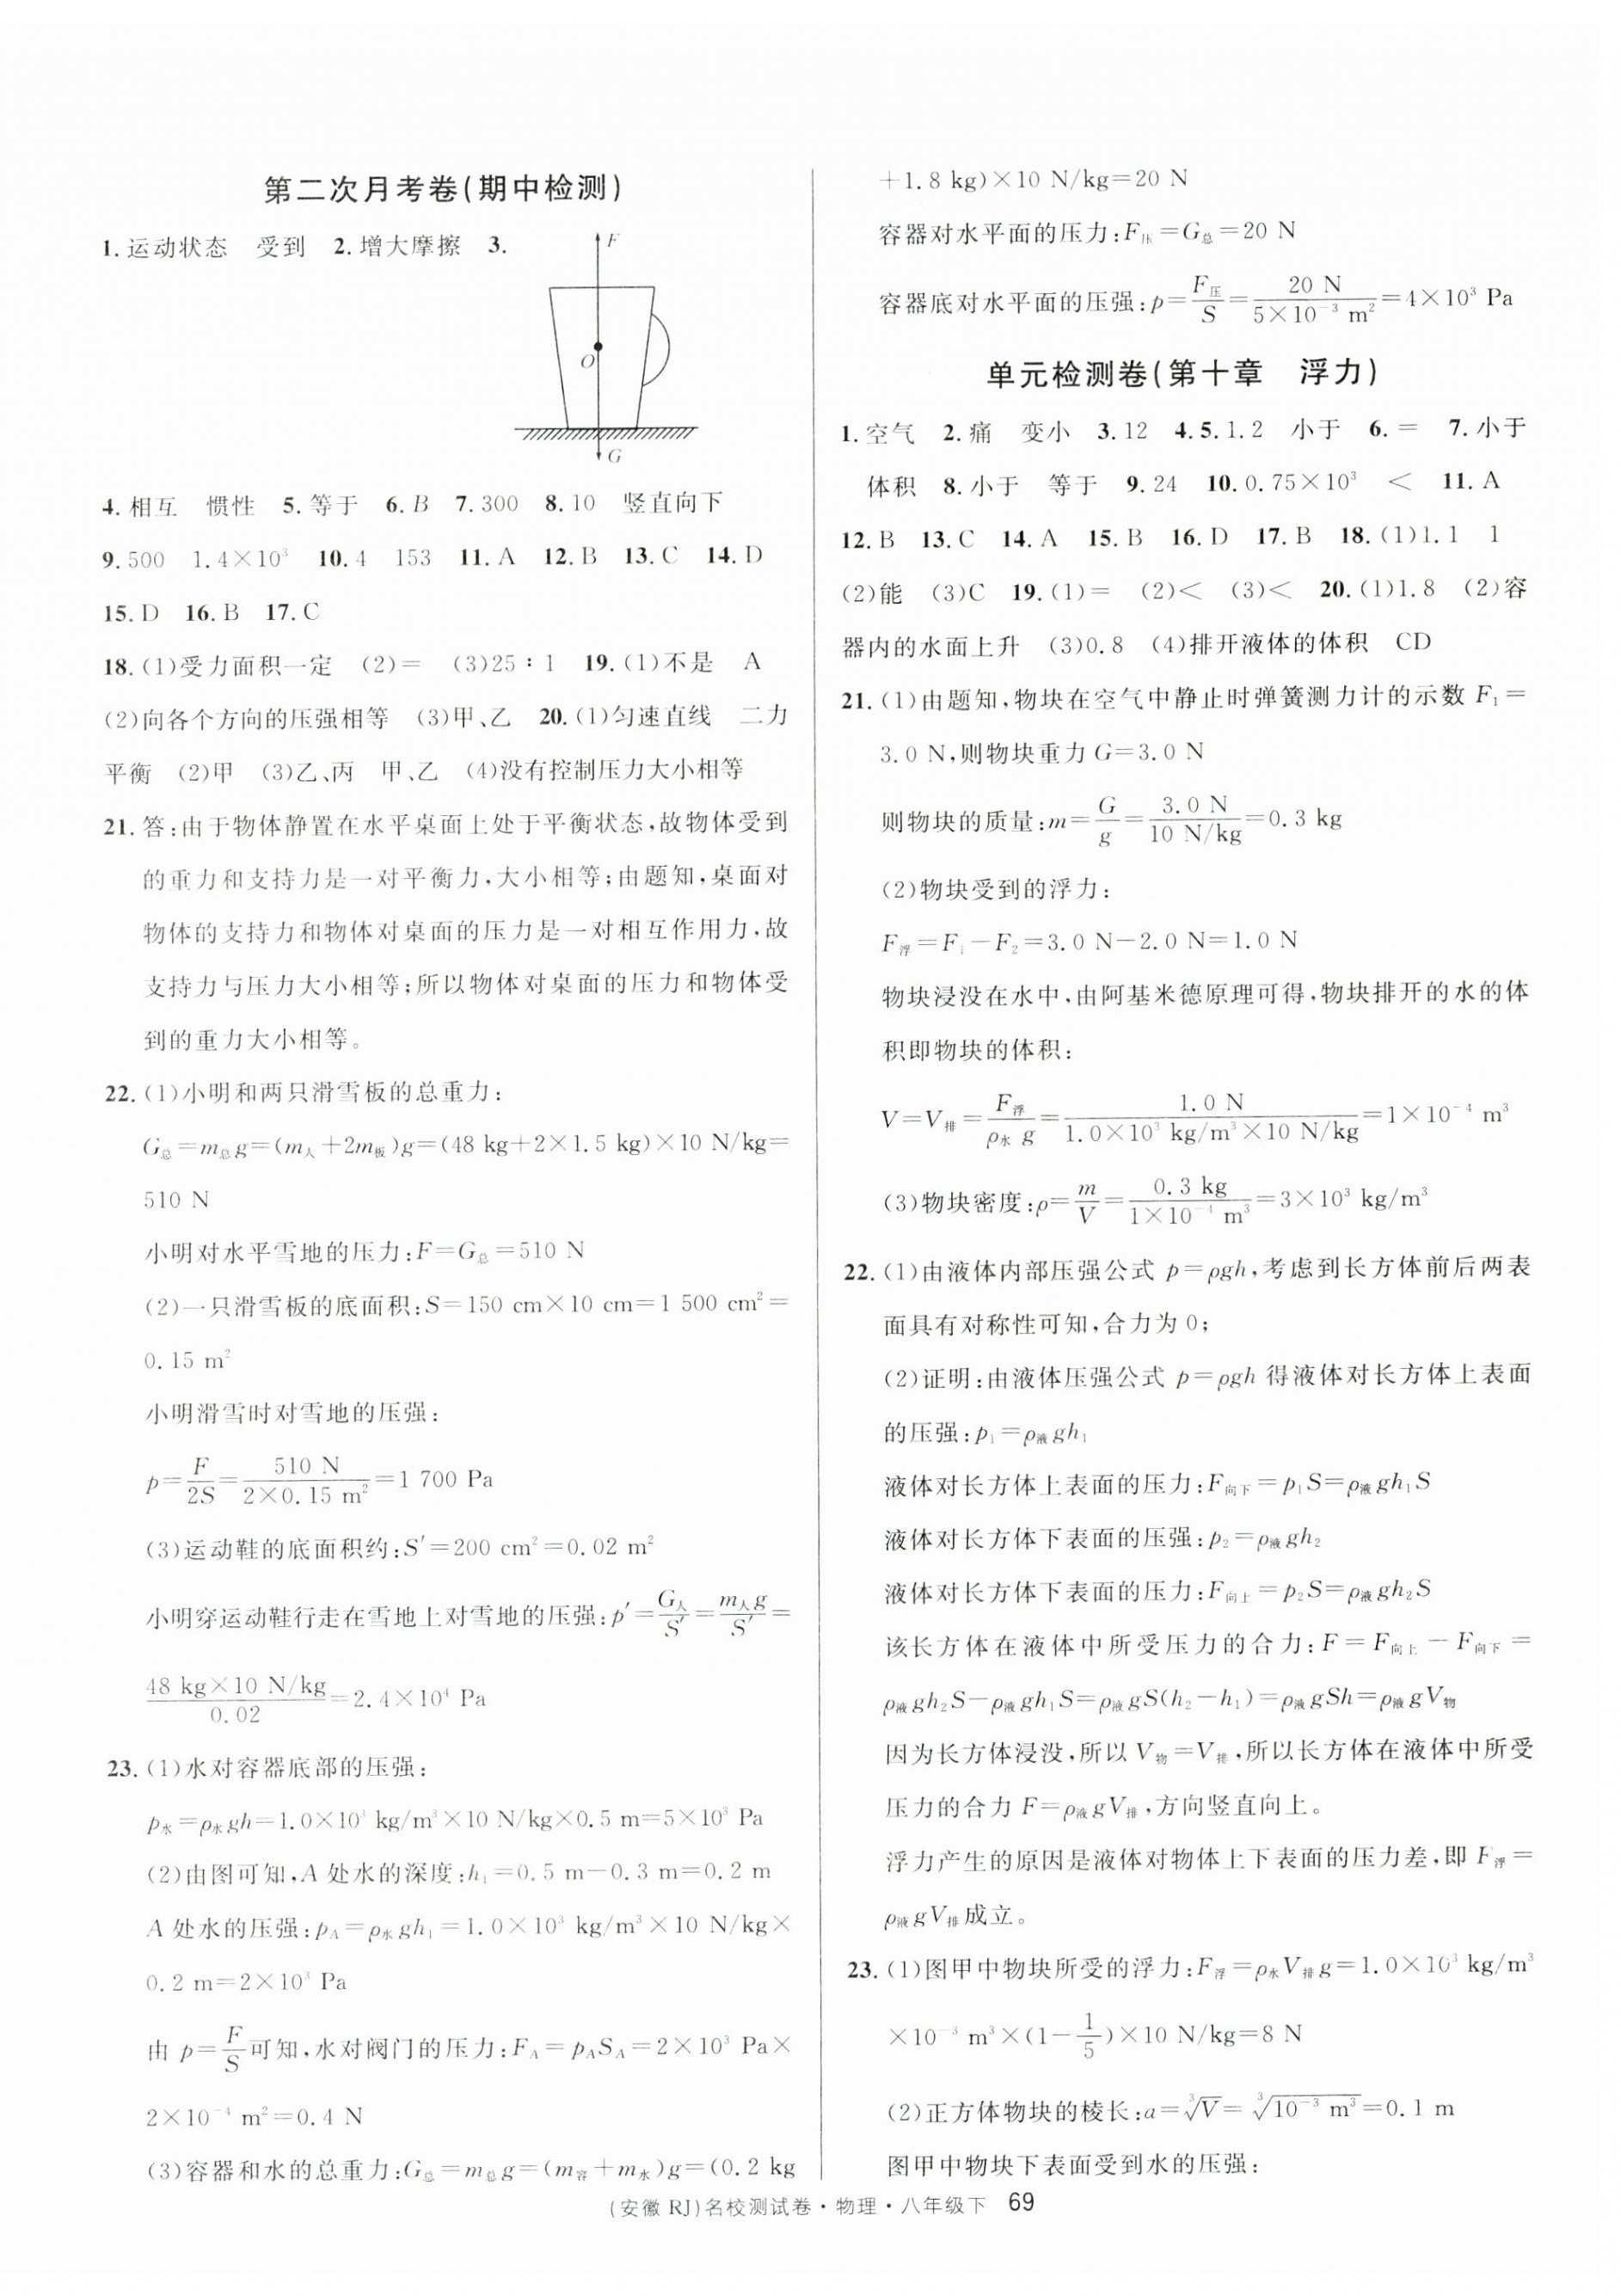 第二次月考卷(期中检测)
1.运动状态 受到 2.增大摩擦 3.
F
O
G
4.相互 惯性 5.等于 6.B 7.300 8.10 竖直向下
9.500 1.4×10³ 10.4 153 11.A 12.B 13.C 14.D
15.D 16.B 17.C
18.(1)受力面积一定 (2)= (3)25∶1 19.(1)不是 A
(2)向各个方向的压强相等 (3)甲、乙 20.(1)匀速直线 二力
平衡 (2)甲 (3)乙、丙 甲、乙 (4)没有控制压力大小相等
21.答:由于物体静置在水平桌面上处于平衡状态,故物体受到
的重力和支持力是一对平衡力,大小相等;由题知,桌面对
物体的支持力和物体对桌面的压力是一对相互作用力,故
支持力与压力大小相等;所以物体对桌面的压力和物体受
到的重力大小相等。
22.(1)小明和两只滑雪板的总重力:
G总=m总g=(m人+2m板)g=(48 kg+2×1.5 kg)×10 N/kg=
510 N
小明对水平雪地的压力:F=G总=510 N
(2)一只滑雪板的底面积:S=150 cm×10 cm=1 500 cm²=
0.15 m²
小明滑雪时对雪地的压强:
p=F/2S=510 N/(2×0.15 m²)=1 700 Pa
(3)运动鞋的底面积约:S′=200 cm²=0.02 m²
小明穿运动鞋行走在雪地上对雪地的压强:p′=G人/S′=m人g/S′=
48 kg×10 N/kg/0.02=2.4×10⁴ Pa
23.(1)水对容器底部的压强:
p水=ρ水gh=1.0×10³ kg/m³×10 N/kg×0.5 m=5×10³ Pa
(2)由图可知,A处水的深度:h₁=0.5 m-0.3 m=0.2 m
A处水的压强:pA=ρ水gh₁=1.0×10³ kg/m³×10 N/kg×
0.2 m=2×10³ Pa
由p=F/S可知,水对阀门的压力:FA=pASA=2×10³ Pa×
2×10⁻⁴ m²=0.4 N
(3)容器和水的总重力:G总=m总g=(m容+m水)g=(0.2 kg
+1.8 kg)×10 N/kg=20 N
容器对水平面的压力:F压=G总=20 N
容器底对水平面的压强:p=F压/S=20 N/(5×10⁻³ m²)=4×10³ Pa
单元检测卷(第十章 浮力)
1.空气 2.痛 变小 3.12 4.5.1.2 小于 6.= 7.小于
体积 8.小于 等于 9.24 10.0.75×10³ < 11.A
12.B 13.C 14.A 15.B 16.D 17.B 18.(1)1.1 1
(2)能 (3)C 19.(1)= (2)< (3)< 20.(1)1.8 (2)容
器内的水面上升 (3)0.8 (4)排开液体的体积 CD
21.(1)由题知,物块在空气中静止时弹簧测力计的示数F₁=
3.0 N,则物块重力G=3.0 N
则物块的质量:m=G/g=3.0 N/(10 N/kg)=0.3 kg
(2)物块受到的浮力:
F浮=F₁-F₂=3.0 N-2.0 N=1.0 N
物块浸没在水中,由阿基米德原理可得,物块排开的水的体
积即物块的体积:
V=V排=F浮/(ρ水 g)=1.0 N/(1.0×10³ kg/m³×10 N/kg)=1×10⁻⁴ m³
(3)物块密度:ρ=m/V=0.3 kg/(1×10⁻⁴ m³)=3×10³ kg/m³
22.(1)由液体内部压强公式p=ρgh,考虑到长方体前后两表
面具有对称性可知,合力为0;
(2)证明:由液体压强公式p=ρgh得液体对长方体上表面
的压强:p₁=ρ液gh₁
液体对长方体上表面的压力:F向下=p₁S=ρ液gh₁S
液体对长方体下表面的压强:p₂=ρ液gh₂
液体对长方体下表面的压力:F向上=p₂S=ρ液gh₂S
该长方体在液体中所受压力的合力:F=F向上-F向下=
ρ液gh₂S-ρ液gh₁S=ρ液gS(h₂-h₁)=ρ液gSh=ρ液gV物
因为长方体浸没,所以V物=V排,所以长方体在液体中所受
压力的合力F=ρ液gV排,方向竖直向上。
浮力产生的原因是液体对物体上下表面的压力差,即F浮=
ρ液gV排成立。
23.(1)图甲中物块所受的浮力:F浮=ρ水V排g=1.0×10³ kg/m³
×10⁻³ m³×(1-1/5)×10 N/kg=8 N
(2)正方体物块的棱长:a=∛V=∛(10⁻³ m³)=0.1 m
图甲中物块下表面受到水的压强:
(安徽 RJ)名校测试卷·物理·八年级下 69